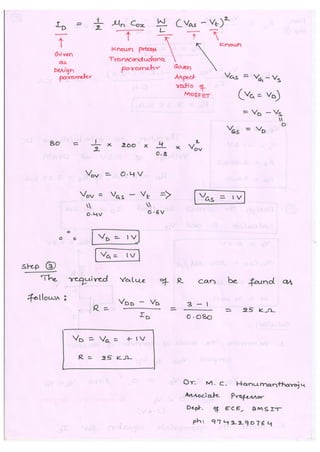 I_D = 1/2 μn Cox W/L (V_GS - V_t)²
Given as Design parameter
Known process Transconductance parameter
Given Aspect ratio of MOSFET
Known
V_GS = V_G - V_S
(V_G = V_D)
= V_D - V_S
0
V_GS = V_D
80 = 1/2 x 200 x 4/0.8 x V_OV²
V_OV = 0.4V
V_OV = V_GS - V_t => V_GS = 1V
0.4V 0.6V
∴ V_D = 1V
V_G = 1V
Step ③
The required value of R can be found as
follows :
R = (V_DD - V_D)/I_D = (3 - 1)/0.080 = 25 KΩ
V_D = V_G = +1V
R = 25 KΩ
Dr. M. C. Hanumantharaju
Associate Professor
Dept. of ECE, BMSIT
ph: 9742290764